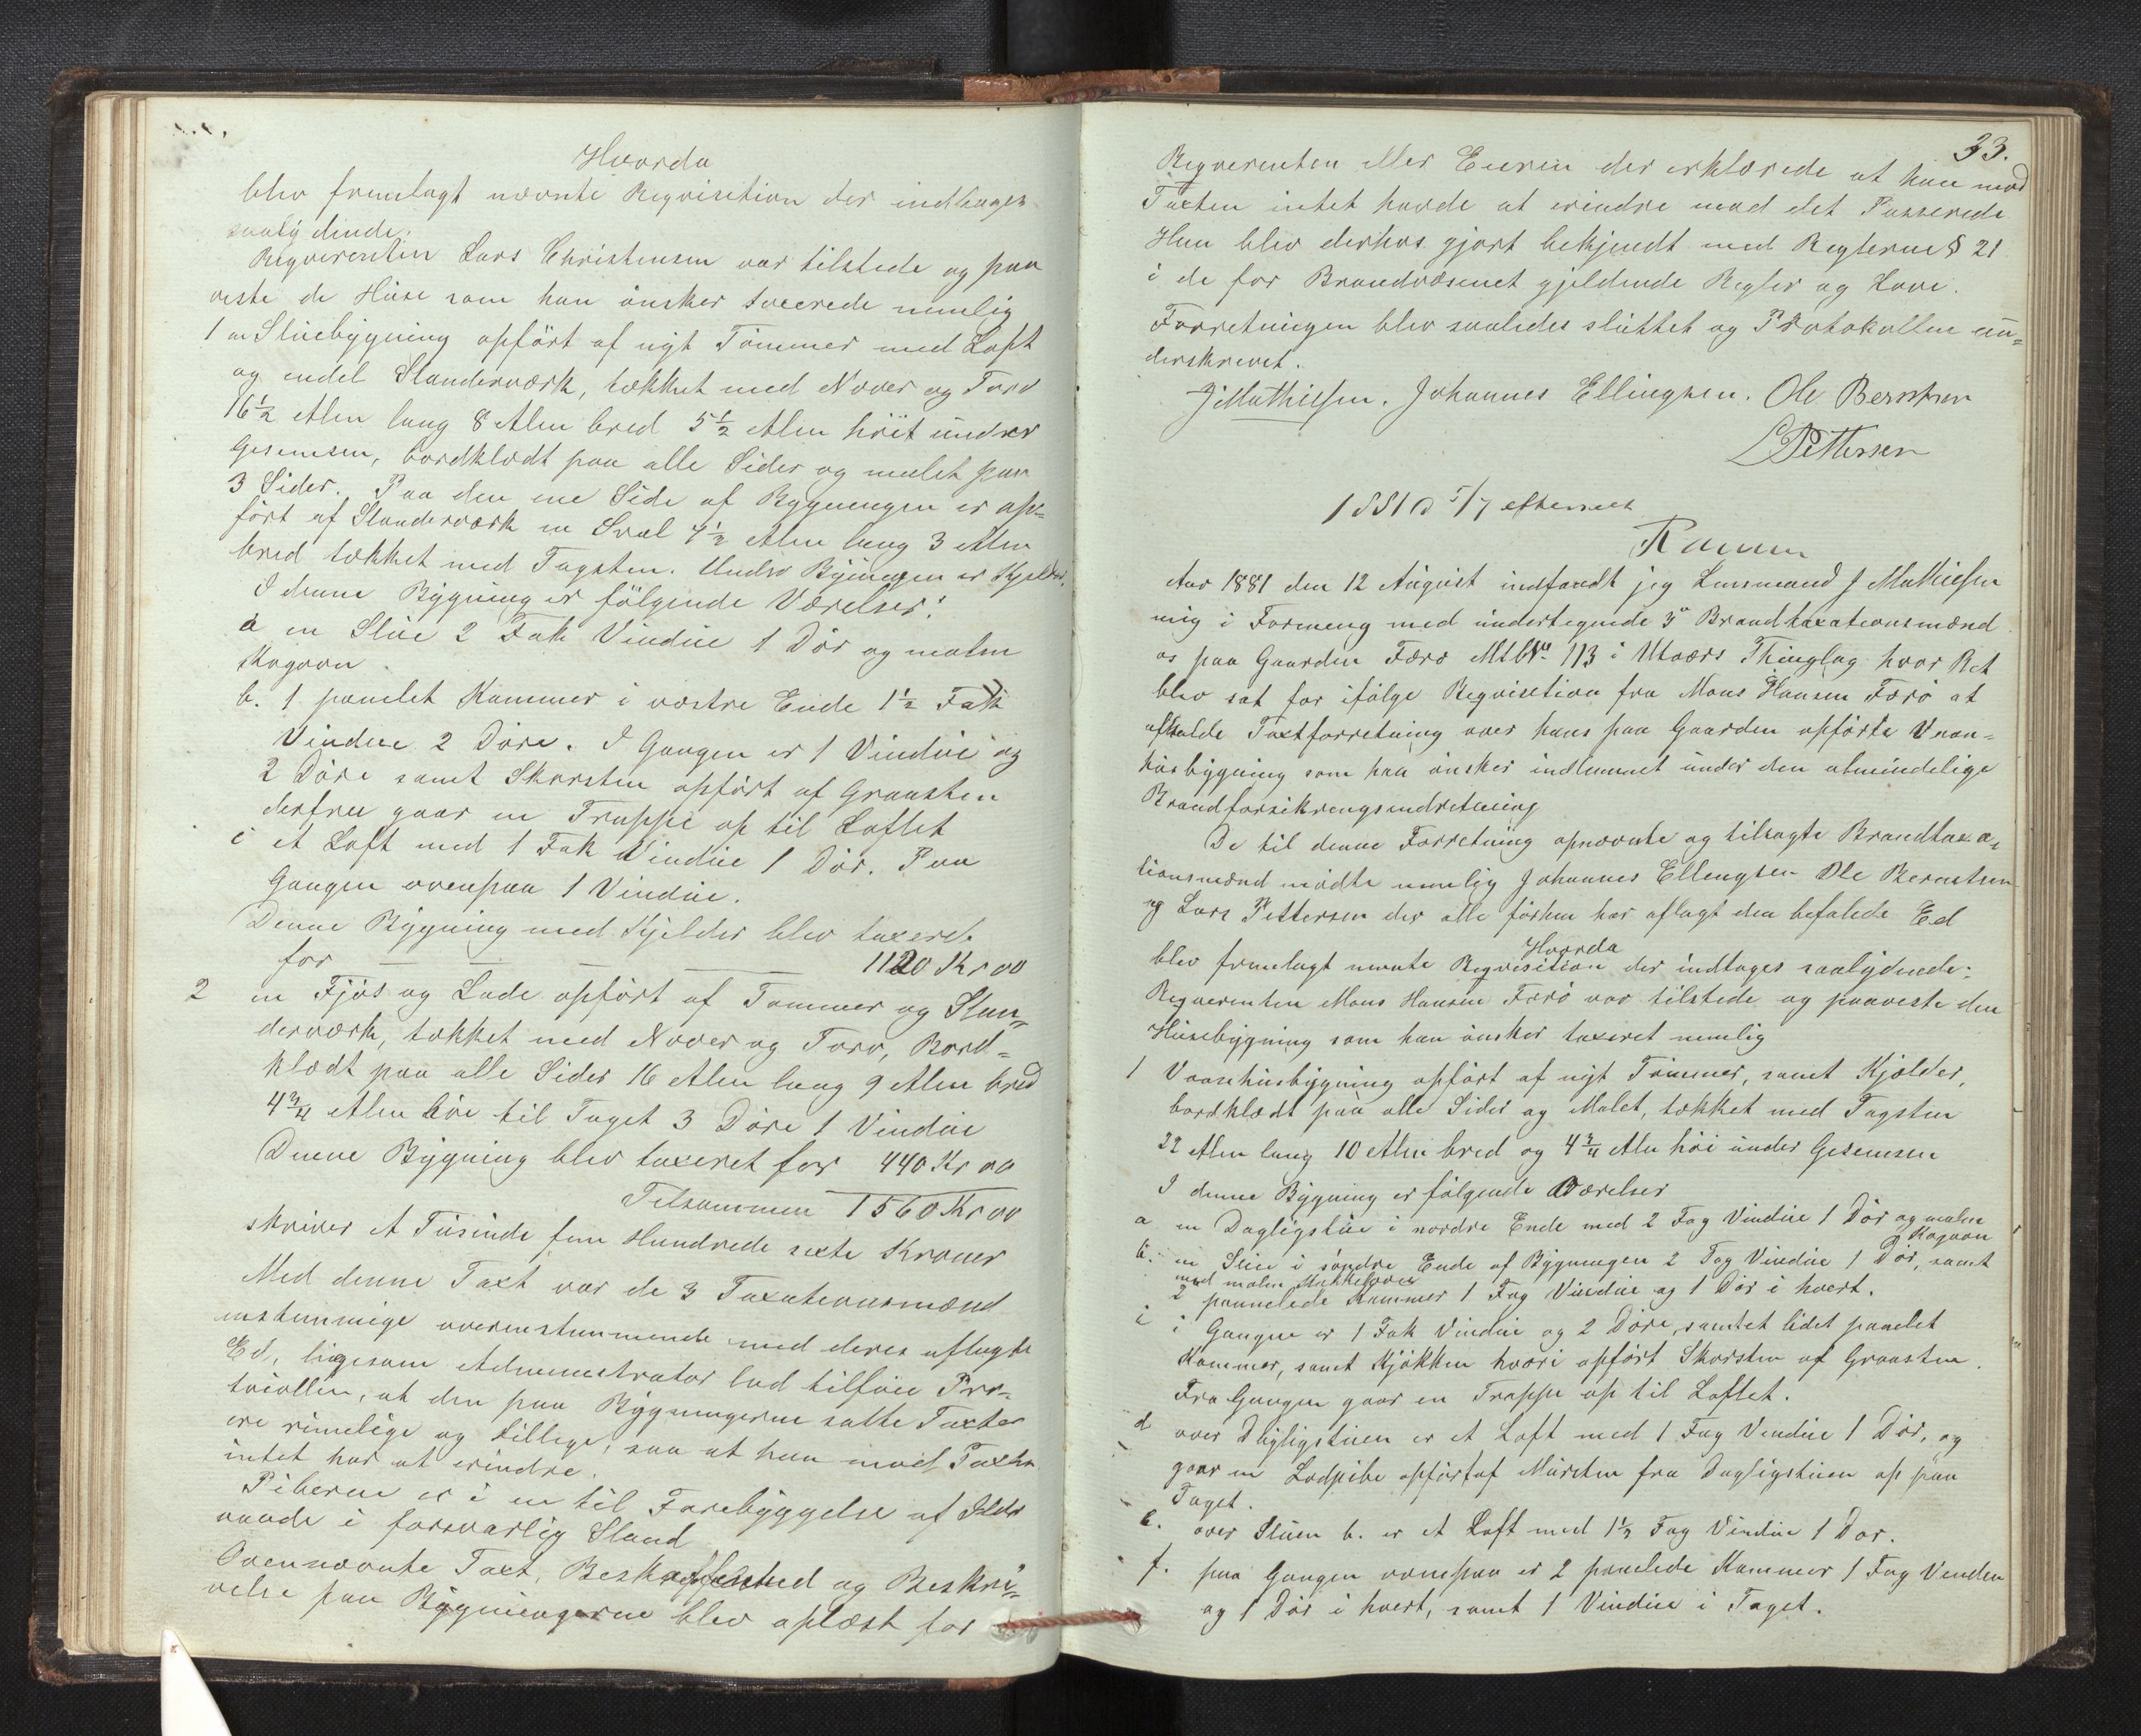 Hvorda
blev fremlagt nævnte Reqvisition der indtages
saalydende.
Reqverenten Lars Christensen var tilstede og paa
viste de Huse som han ønsker taxerede nemlig
1 en Stuebygning opført af nyt Tømmer med Loft
og endel Standerværk, tækket med Næver og Torv
16½ Alen lang 8 Alen bred 5½ Alen høit under
Gesemsen, bordklædt paa alle Sider og malet paa
3 Sider. Paa den ene Side af Bygningen er op=
ført af Standerværk en Sval 7½ Alen lang 3 Alen
bred tækket med Tagsten. Under Bygningen er Kjelder.
I denne Bygning er følgende Værelser:
a en Stue 2 Fak Vindue 1 Dør og malm
Kogovn
b. 1 panelet Kammer i vestre Ende 1½ Fak
Vindue 2 Døre. I Gangen er 1 Vindue og
2 Døre samt Skorsten opført af Graasten
derfra gaar en Trappe op til Loftet
c et Loft med 1 Fak Vindue 1 Dør. Paa
Gangen ovenpaa 1 Vindue.
Denne Bygning med Kjelder blev taxeret
for — — — — 1120 Kr 00
2 en Fjøs og Lade opført af Tømmer og Stan=
derværk, tækket med Næver og Torv, Bord=
klædt paa alle Sider 16 Alen lang 9 Alen bred
4¾ Alen høie til Taget 3 Døre 1 Vindue
Denne Bygning blev taxeret for 440 Kr 00
Tilsammen 1560 Kr 00
skriver et Tusinde fem Hundrede sexti Kroner
Med denne Taxt var de 3 Taxationsmænd
enstemmige overenstemmende med deres aflagte
Ed, ligesom Administrator lod tilføie Pro=
tocollen, at den paa Bygningerne satte Taxter
ere rimelige og billige, saa at han mod Taxten
intet har at erindre.
Piberne er i en til Forebyggelse af Ilds
vaade i forsvarlig Stand
Ovennævnte Taxt, Beskaffenhed og Beskri=
velse paa Bygningerne blev oplæst for
33.
Reqverenten eller Eieren der erklærede at han mod
Taxten intet havde at erindre mod det Passerede
Han blev derhos gjort bekjendt med Reglerne § 21
i de for Brandvæsenet gjeldende Regler og Love.
Forretningen blev saaledes sluttet og Protokollen un=
derskrevet.
J Mathiesen. Johannes Ellingsen. Ole Berntsen
L Pettersen
Aar 1881 den 12 August indfandt jeg Lensmand J Mathiesen
mig i Forening med undertegnede 3de Brandtaxationsmænd
os paa Gaarden Færø Mtl No 113 i Utvær Thinglag hvor Ret
blev sat for ifølge Reqvisition fra Mons Hansen Færø at
afholde Taxtforretning over hans paa Gaarden opførte Vaan=
husbygning som han ønsker indlemmet under den almindelige
Brandforsikringsindretning
De til denne Forretning opnævnte og tilsagte Brandtaxa=
tionsmænd mødte nemlig Johannes Ellingsen Ole Berntsen
og Lars Pettersen der alle førhen har aflagt den befalede Ed
Hvorda
blev fremlagt nævnte Reqvisition der indtages saalydende:
Reqverenten Mons Hansen Færø var tilstede og paaviste den
Husebygning som han ønsker taxeret nemlig
1 Vaanhusbygning opført af nyt Tømmer, samt Kjælder,
bordklædt paa alle Sider og Malet, tækket med Tagsten
22 Alen lang 10 Alen bred og 4¾ Alen høi under Gesemsen
I denne Bygning er følgende Værelser
a en Dagligstue i nordre Ende med 2 Fag Vindue 1 Dør og malm
Kogovn
b. en Stue i søndre Ende af Bygningen 2 Fag Vindue 1 Dør, samt
med malm Kakkelovn
2 pannelede Kammer 1 Fag Vindue og 1 Dør i hvert.
c i Gangen er 1 Fak Vindue og 2 Døre, samt et lidet panelet
Kammer, samt Kjøkken hvori opført Skorsten af Graasten.
Fra Gangen gaar en Trappe op til Loftet.
d over Dagligstuen er et Loft med 1 Fag Vindue 1 Dør, og
gaar en Lodpibe opført af Mursten fra Dagligstuen op paa
Taget.
e. over Stuen b. er et Loft med 1½ Fag Vindue 1 Dør.
f. paa Gangen ovenpaa er 2 panelede Kammer 1 Fag Vindue
og 1 Dør i hvert, samt 1 Vindue i Taget.